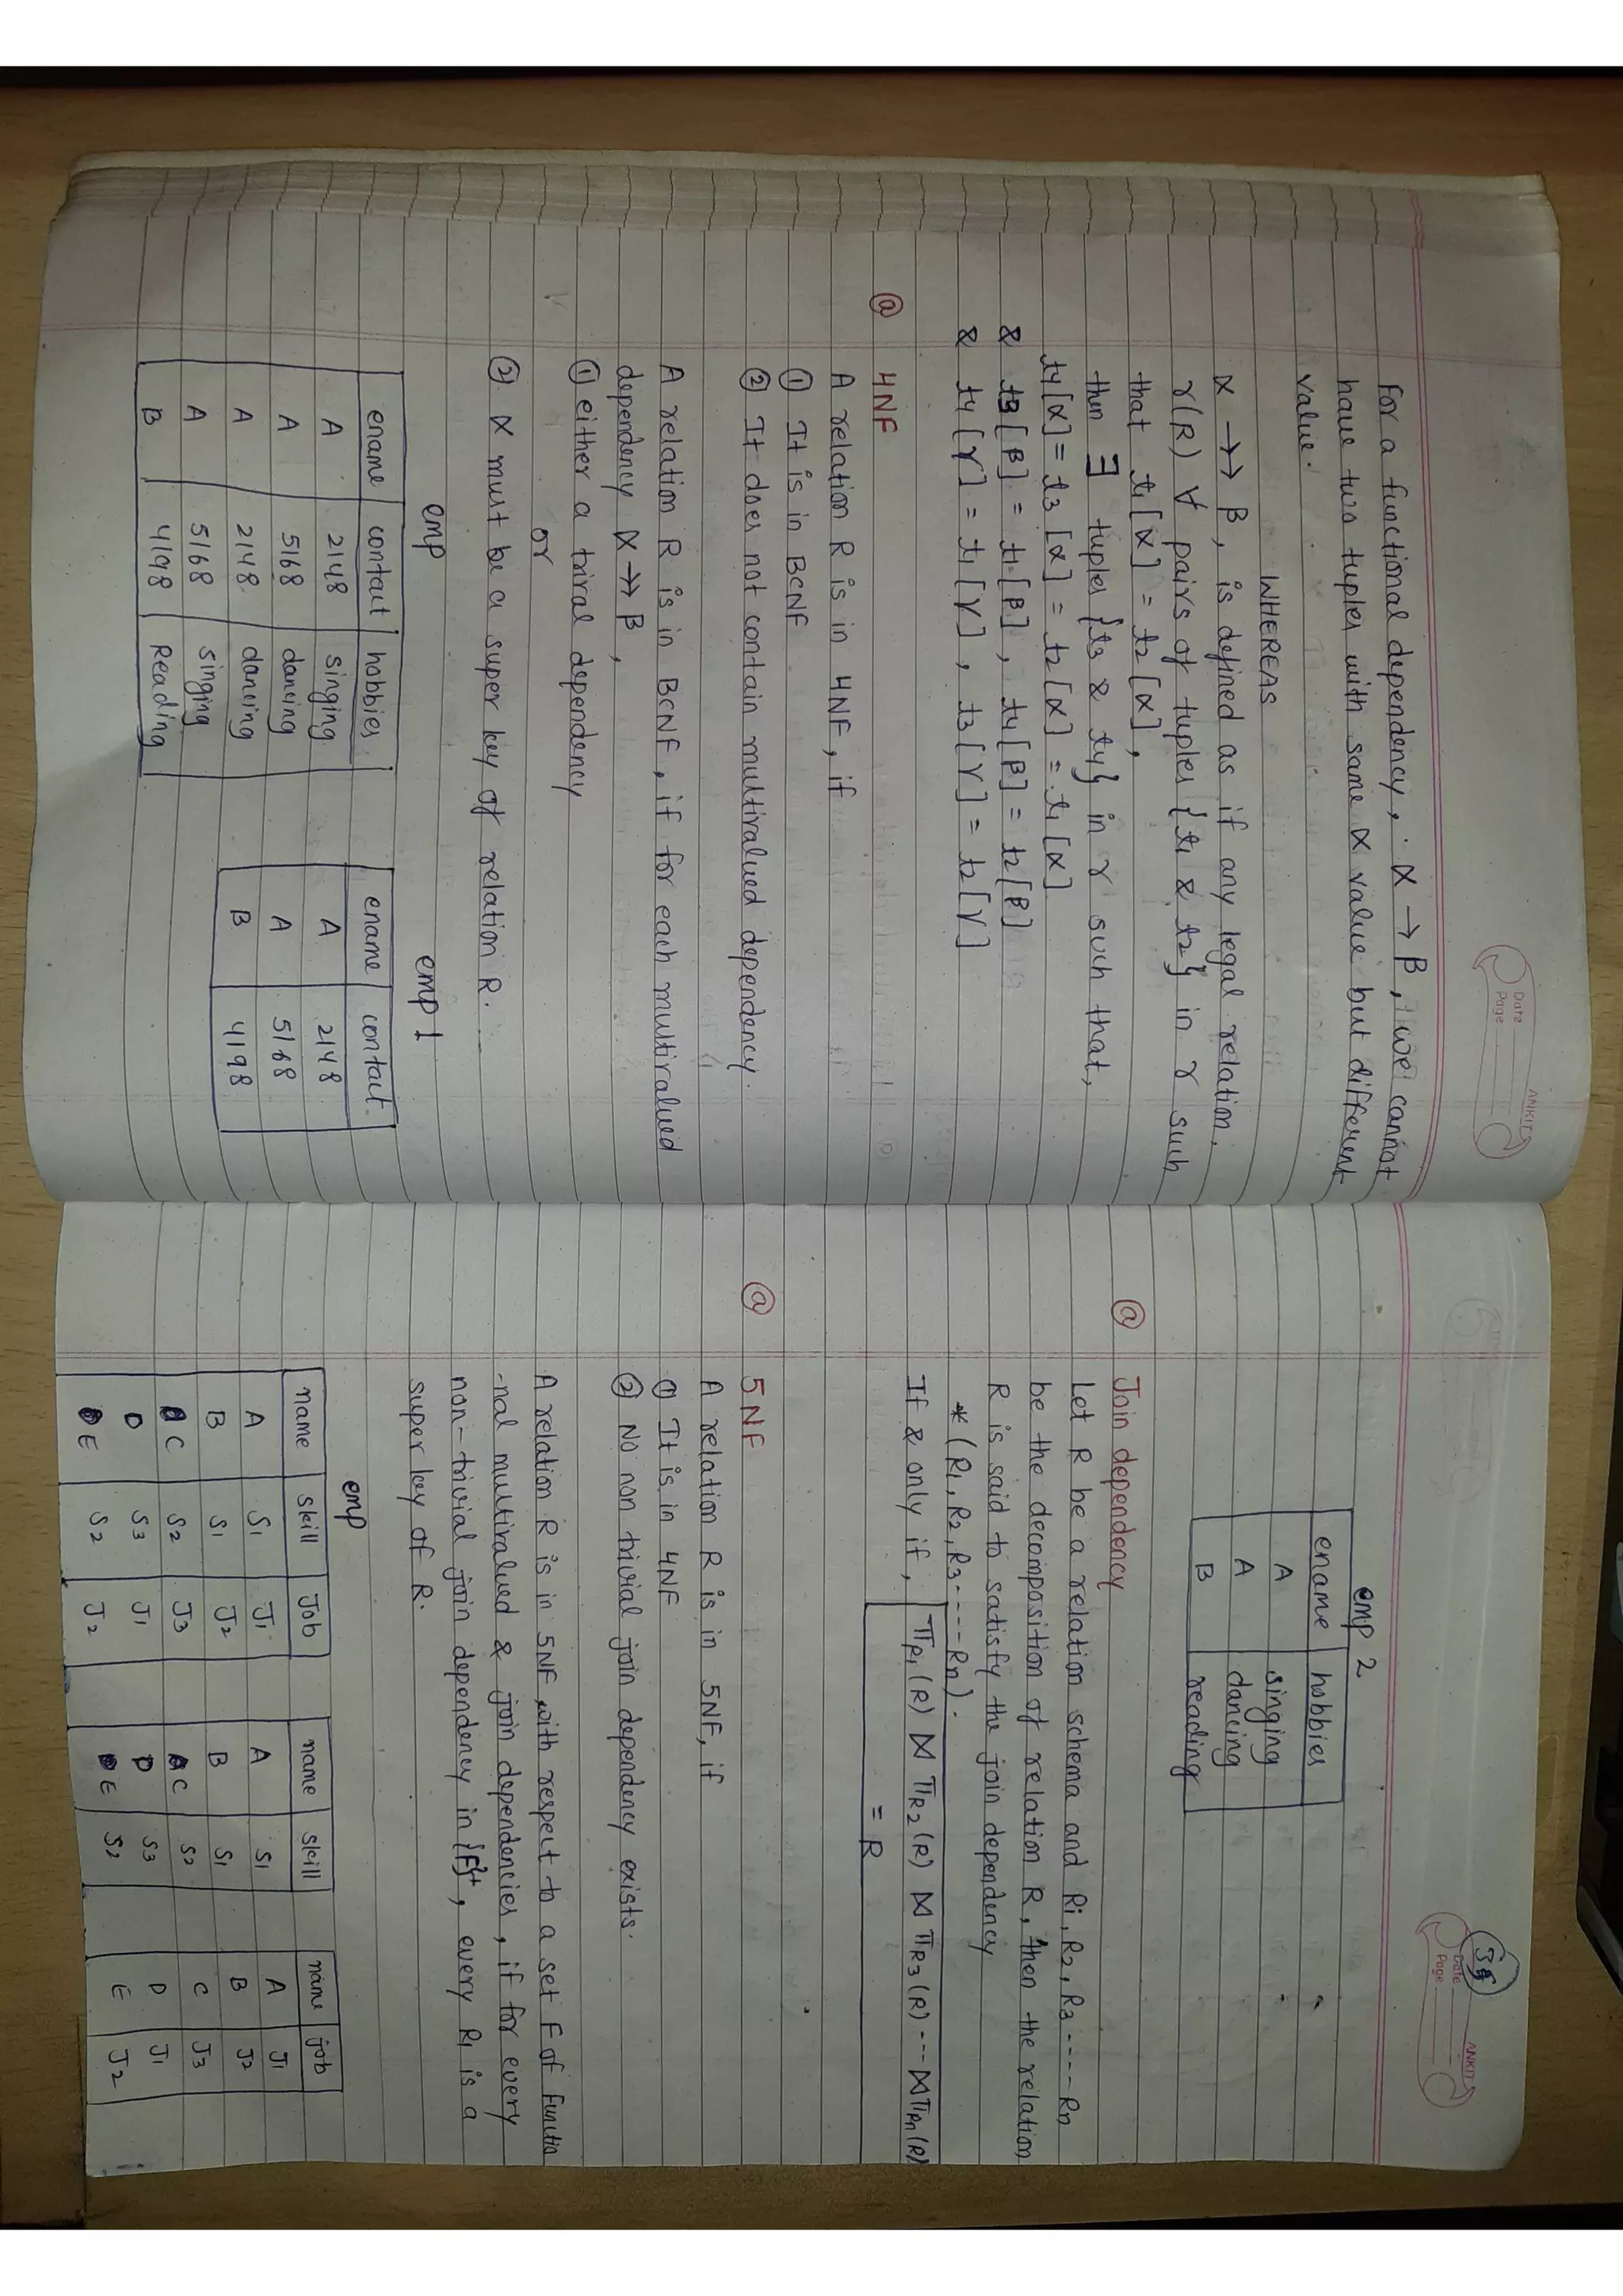 Date
Page
ANKIT
For a functional dependency, α → β, we cannot
have two tuples with same α value but different
value.
WHEREAS
α →→ β, is defined as if any legal relation,
r(R) ∀ pairs of tuples {t1 & t2} in r such
that t1[α] = t2[α],
then ∃ tuples {t3 & t4} in r such that,
t4[α] = t3[α] = t2[α] = t1[α]
& t3[β] = t1[β], t4[β] = t2[β]
& t4[γ] = t1[γ], t3[γ] = t2[γ]
@ 4NF
A relation R is in 4NF, if
① It is in BCNF
② It does not contain multivalued dependency.
A relation R is in BCNF, if for each multivalued
dependency α →→ β,
① either a trival dependency
or
② α must be a super key of relation R.
emp
ename contact hobbies
A 2148 singing
A 5168 dancing
A 2148 dancing
A 5168 singing
B 4198 Reading
emp 1
ename contact
A 2148
A 5168
B 4198
Date
Page
ANKIT
emp 2
ename hobbies
A singing
A dancing
B reading
@ Join dependency
Let R be a relation schema and R1, R2, R3 ---- Rn
be the decomposition of relation R, then the relation
R is said to satisfy the join dependency
*(R1, R2, R3 ---- Rn).
If & only if, πR1(R) ⋈ πR2(R) ⋈ πR3(R) --- ⋈ πRn(R)
= R
@ 5NF
A relation R is in 5NF, if
① It is in 4NF
② No non trivial join dependency exists.
A relation R is in 5NF with respect to a set F of functio
-nal multivalued & join dependencies, if for every
non-trivial join dependency in {F}+, every Ri is a
super key of R.
emp
name skill Job
A S1 J1
B S1 J2
C S2 J3
D S3 J1
E S2 J2
name skill
A S1
B S1
C S2
D S3
E S2
name job
A J1
B J2
C J3
D J1
E J2